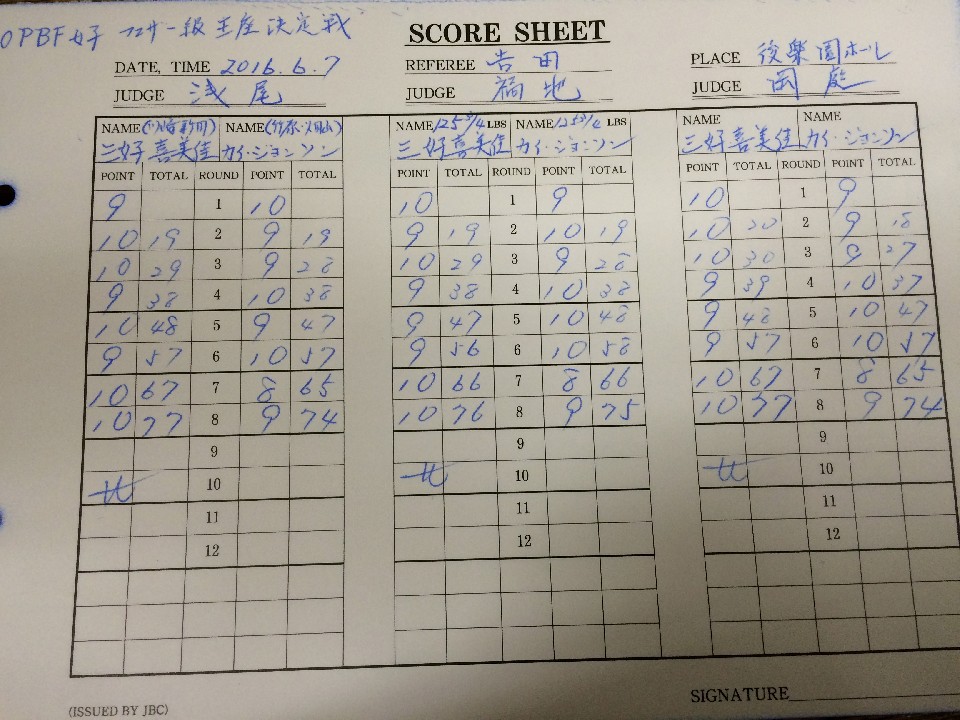 OPBF女子 フェザー級王座決定戦
SCORE SHEET
DATE, TIME 2016.6.7 REFEREE 吉田 PLACE 後楽園ホール
JUDGE 浅尾 JUDGE 福地 JUDGE 岡庭
NAME NAME NAME 125 3/4 LBS NAME LBS NAME NAME
三好喜美佳 カイ・ジョンソン 三好喜美佳 カイ・ジョンソン 三好喜美佳 カイ・ジョンソン
POINT TOTAL ROUND POINT TOTAL POINT TOTAL ROUND POINT TOTAL POINT TOTAL ROUND POINT TOTAL
9 1 10 10 1 9 10 1 9
10 19 2 9 19 9 19 2 10 19 10 20 2 9 18
10 29 3 9 28 10 29 3 9 28 10 30 3 9 27
9 38 4 10 38 9 38 4 10 38 9 39 4 10 37
10 48 5 9 47 9 47 5 10 48 9 48 5 10 47
9 57 6 10 57 9 56 6 10 58 9 57 6 10 57
10 67 7 8 65 10 66 7 8 66 10 67 7 8 65
10 77 8 9 74 10 76 8 9 75 10 77 8 9 74
9 9 9
10 10 10
11 11 11
12 12 12
(ISSUED BY JBC) SIGNATURE